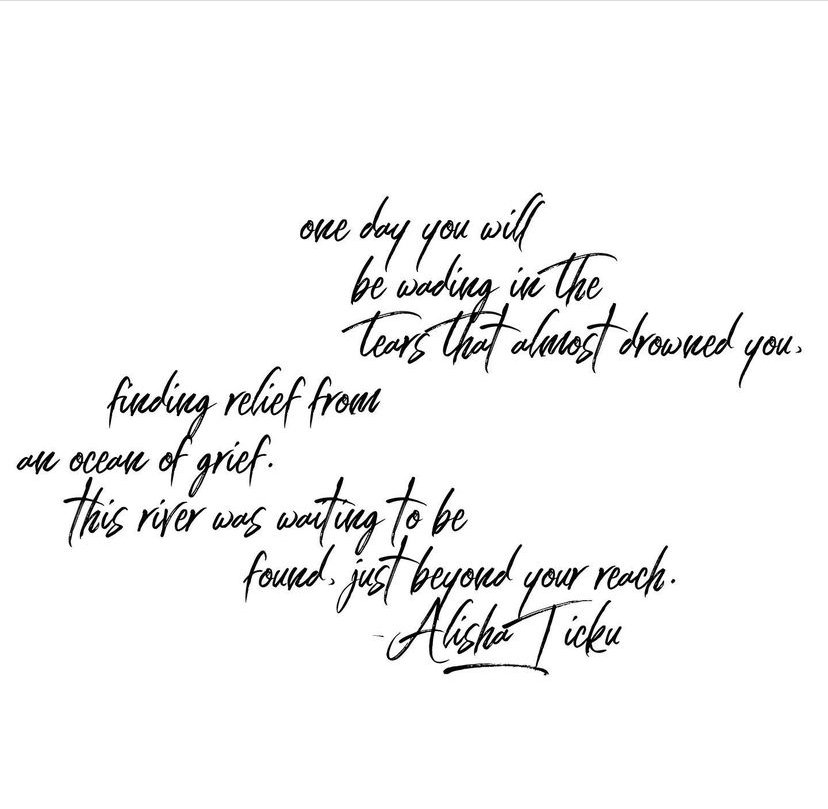 one day you will
be wading in the
tears that almost drowned you,
finding relief from
an ocean of grief.
this river was waiting to be
found, just beyond your reach.
- Alisha Ticku